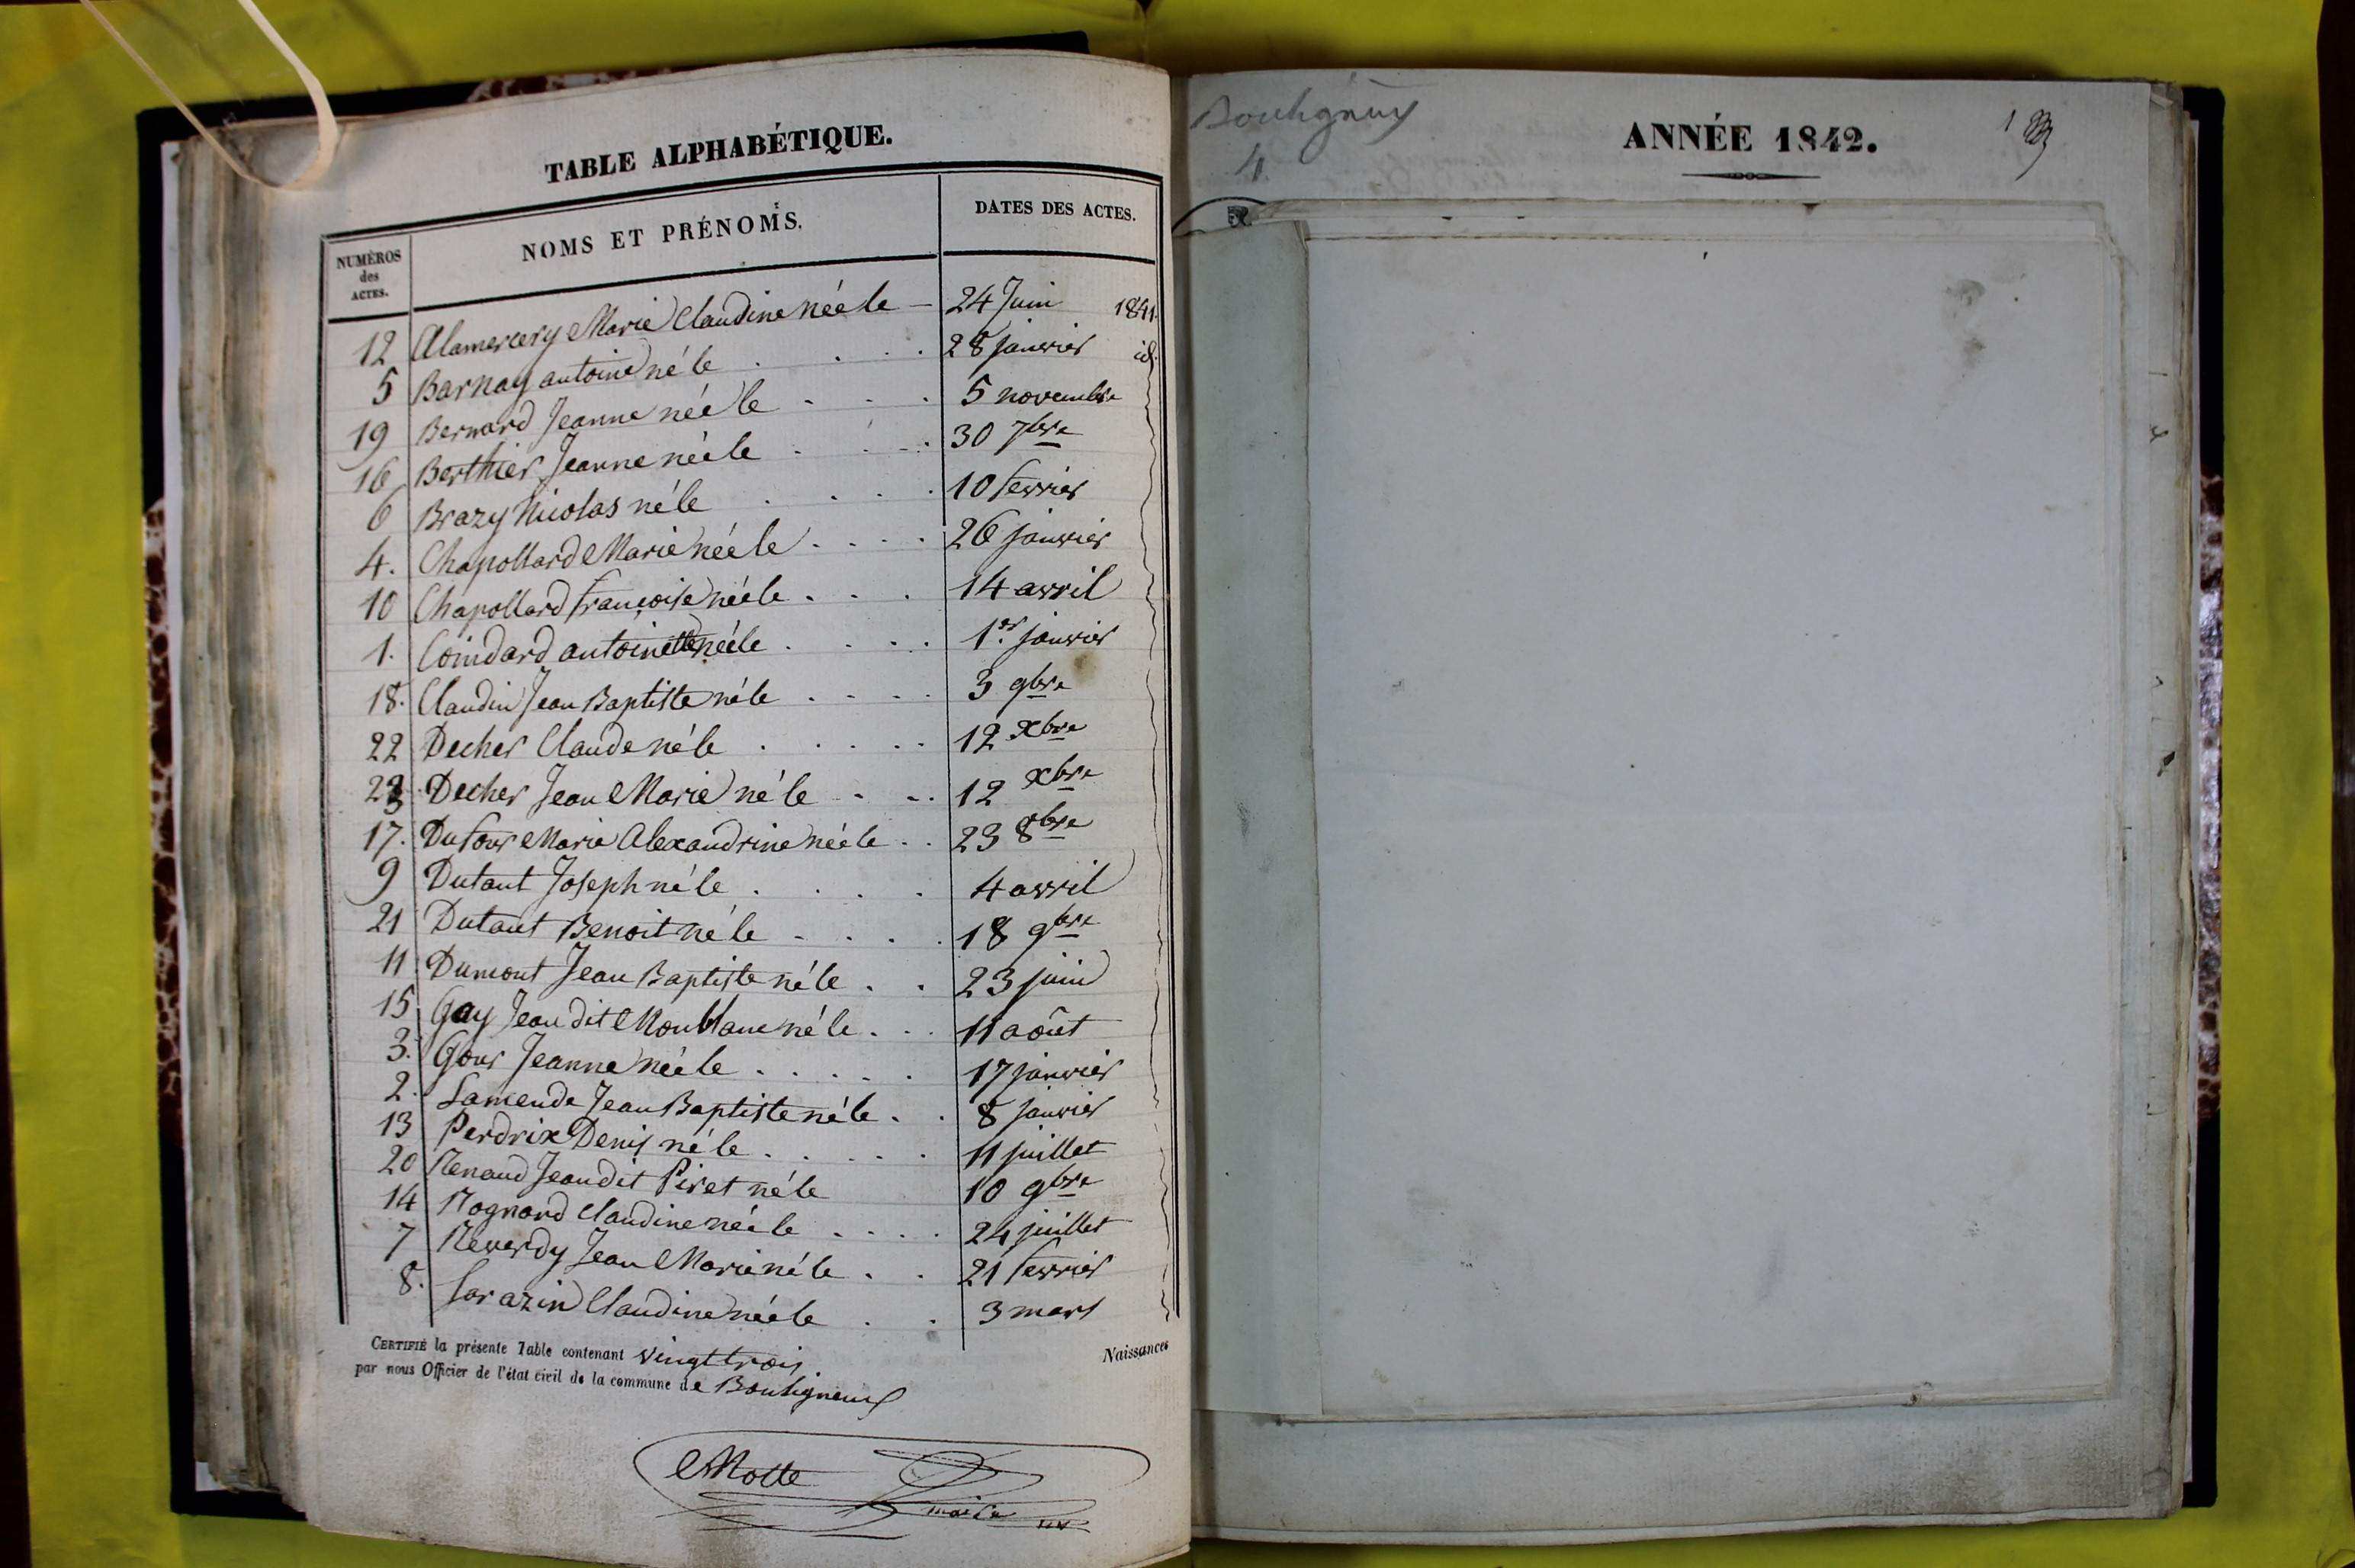 TABLE ALPHABÉTIQUE.
NUMÉROS des ACTES. NOMS ET PRÉNOMS. DATES DES ACTES.
12 Alamercery Marie Claudine née le - 24 Juin 1841.
5 Barnay antoine né le . . . . 28 janvier id.
19 Bernard Jeanne née le . . . 5 novembre
16 Berthier Jeanne née le . . . 30 7bre
6 Brazy Nicolas né le . . . . 10 fevrier
4. Chapollard Marie née le . . . . 26 janvier
10 Chapollard françoise née le . . . 14 avril
1. Coindard antoinette née le . . . . 1er janvier
18. Claudin Jean Baptiste né le . . . . 3 9bre
22 Decher Claude né le . . . . . 12 Xbre
23. Decher Jean Marie né le . . . 12 Xbre
17. Dufour Marie Alexandrine née le . . 23 8bre
9 Dutant Joseph né le . . . . 4 avril
21 Dutant Benoit né le . . . . 18 9bre
11 Dumont Jean Baptiste né le . . 23 juin
15 Gay Jean dit Monblanc né le . . . 11 août
3. Gour Jeanne née le . . . . . 17 janvier
2. Lamende Jean Baptiste né le . . 8 janvier
13 Perdrix Denis né le . . . . . 11 juillet
20 Renaud Jean dit Piret né le 10 9bre
14 Rognard Claudine née le . . . . 24 juillet
7 Reverdy Jean Marie né le . . 21 fevrier
8. Sarazin Claudine née le . . 3 mars
CERTIFIÉ la présente Table contenant vingt trois
Naissances
par nous Officier de l'état civil de la commune de Bouligneux
Motte
maire
Bouligneux
4
ANNÉE 1842.